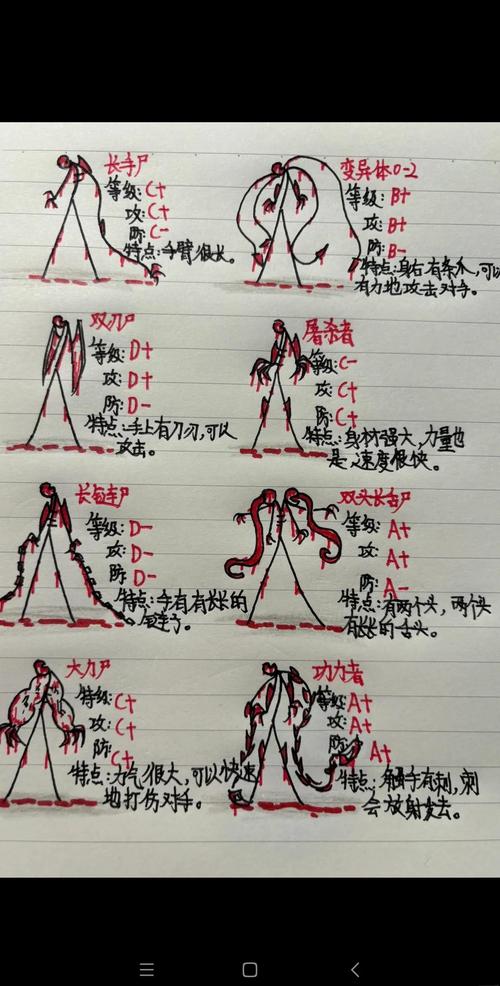 长手尸
等级:C+
攻:C+
防:C-
特点:手臂很长。
变异体0-2
等级:B+
攻:B+
防:B-
特点:身右有条爪,可以
有力地攻击对手。
双刀尸
等级:D+
攻:D+
防:D-
特点:手上有刀刃,可以
攻击。
屠杀者
等级:C-
攻:C+
防:C+
特点:身材强大,力量也
是,速度很快。
长链尸
等级:D-
攻:D-
防:D-
特点:手有有长长的
链子。
双头长舌尸
等级:A+
攻:A+
防:A-
特点:有两个头,两个头
有长长的舌头。
大力尸
等级:C+
攻:C+
防:C+
特点:力气很大,可以快速
地打伤对手。
功力者
等级:A+
攻:A+
防:A+
特点:触手有刺,刺
会放射发去。